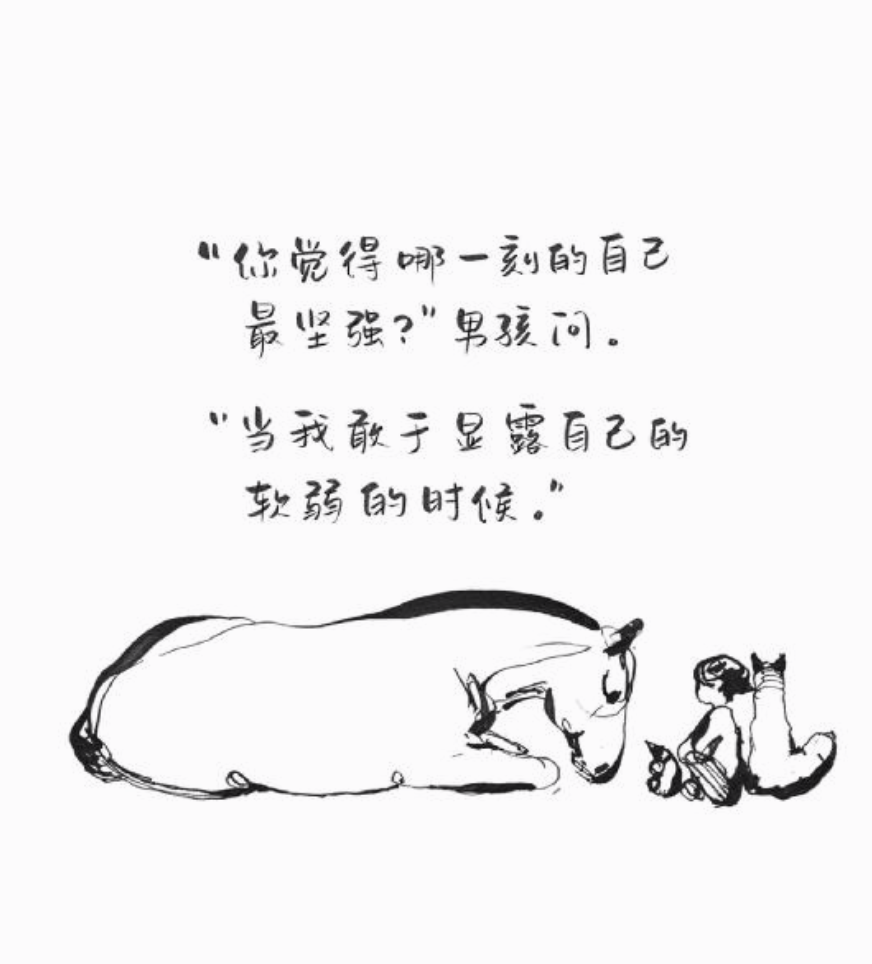 “你觉得哪一刻的自己
最坚强?”男孩问。
“当我敢于显露自己的
软弱的时候。”